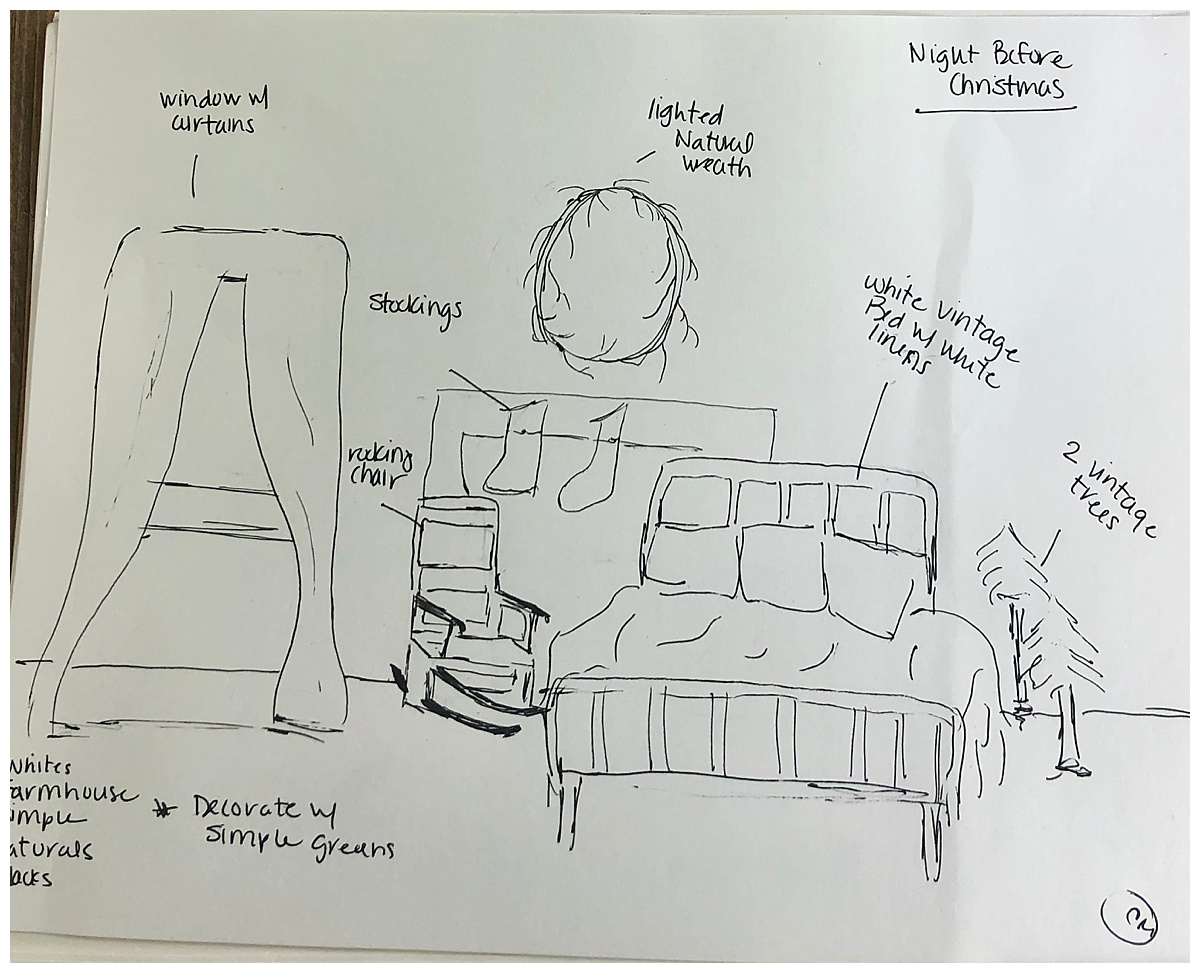 Night Before
Christmas
window w/
curtains
lighted
Natural
wreath
stockings
white vintage
Bed w/ white
linens
rocking
chair
2 vintage
trees
Whites
armhouse
imple
aturals
lacks
* Decorate w/
Simple greens
CM